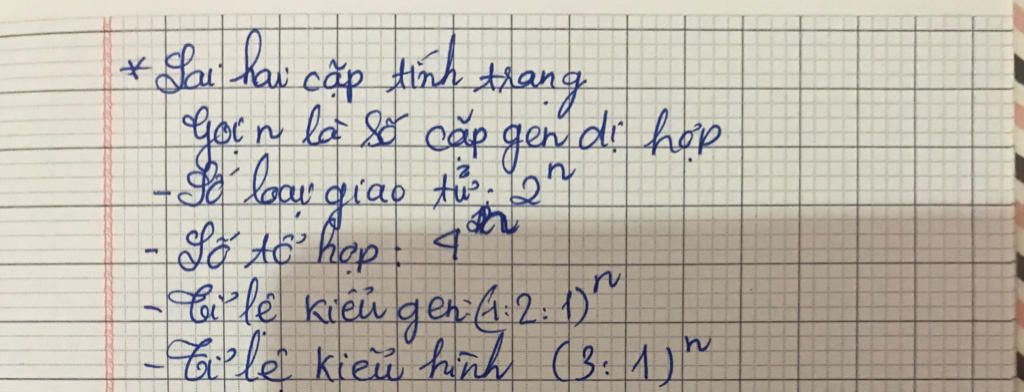 * Lai hai cặp tính trạng
Gọi n là số cặp gen dị hợp
- Số loại giao tử: 2ⁿ
- Số tổ hợp: 4ⁿ
- Tỉ lệ kiểu gen: (1:2:1)ⁿ
- Tỉ lệ kiểu hình (3:1)ⁿ